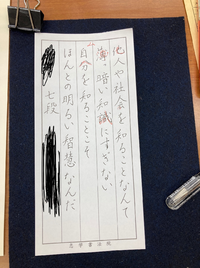 他人や社会を知ることなんて
薄暗い知識にすぎない
自分を知ることこそ
ほんとの明るい智慧なんだ
七段